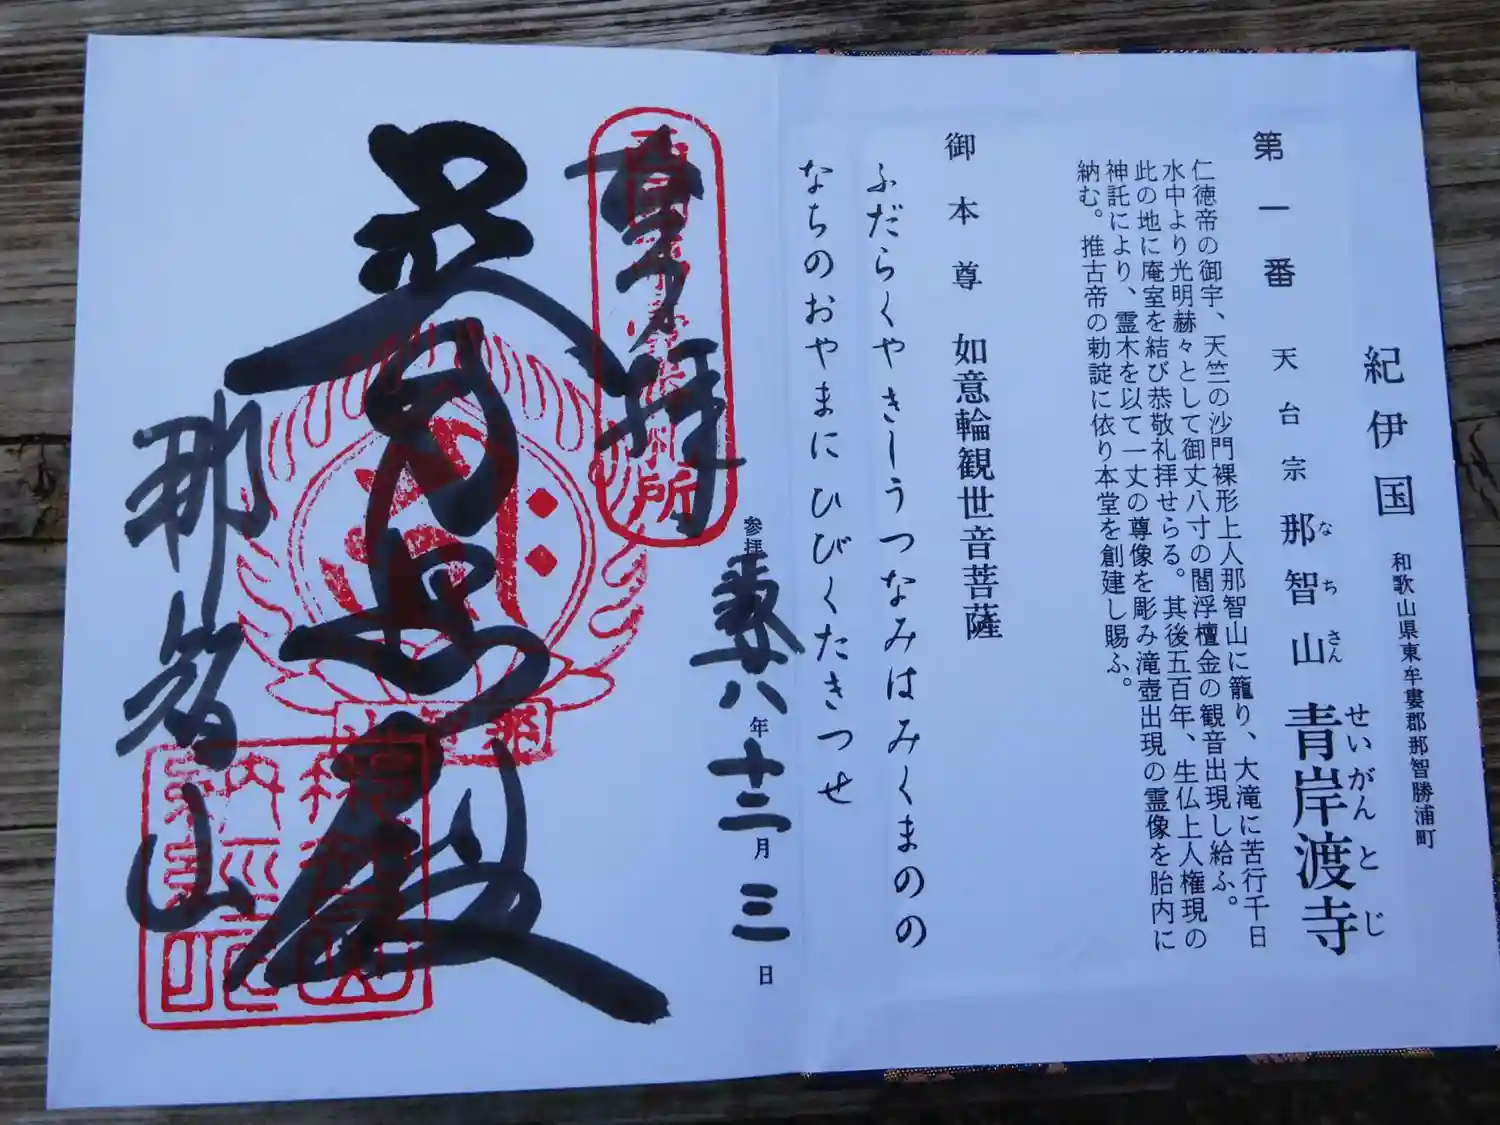 紀伊国
和歌山県東牟婁郡那智勝浦町
第一番 天台宗 那智山 青岸渡寺
なちさん せいがんとじ
仁徳帝の御宇、天竺の沙門裸形上人那智山に籠り、大滝に苦行千日
水中より光明赫々として御丈八寸の閻浮檀金の観音出現し給ふ。
此の地に庵室を結び恭敬礼拝せらる。其後五百年、生仏上人権現の
神託により、霊木を以て一丈の尊像を彫み滝壺出現の霊像を胎内に
納む。推古帝の勅諚に依り本堂を創建し賜ふ。
御本尊 如意輪観世音菩薩
ふだらくやきしうつなみはみくまのの
なちのおやまにひびくたきつせ
参拝
八年十二月三日
奉拝
那智山